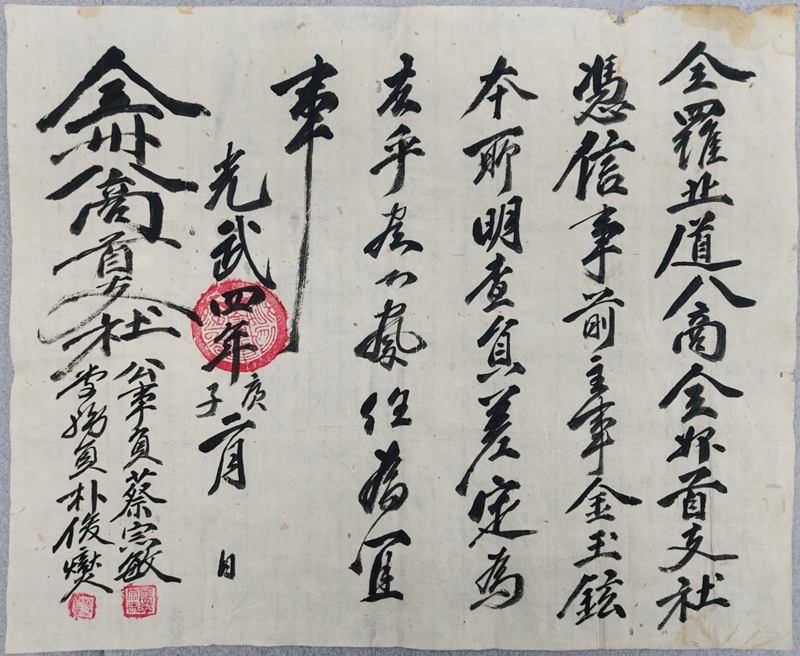 全羅北道八商全州首支社
憑信事前主事金玉鉉
本所明查員差定為
去乎 察任為宜
事
光武四年庚子二月 日
全州商首支社
公事員蔡宗敏
掌務員朴俊燮